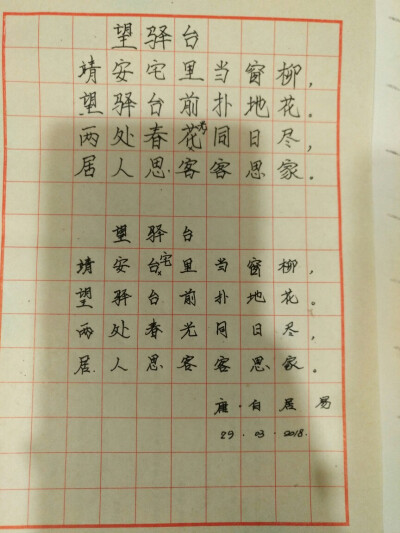 望驿台
靖安宅里当窗柳，
望驿台前扑地花。
两处春花光同日尽，
居人思客客思家。
望驿台
靖安台宅里当窗柳，
望驿台前扑地花。
两处春光同日尽，
居人思客客思家。
唐·白居易
29·03·2018.